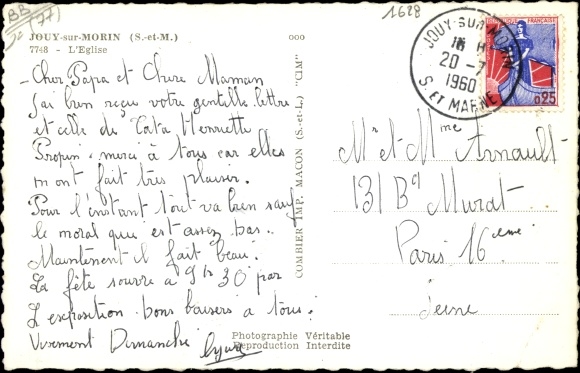 BB
(77)
1628
JOUY-sur-MORIN (S.-et-M.)
7748 - L'Eglise
000
Cher Papa et Chere Maman
J'ai bien reçu votre gentille lettre
et celle de Tata Henriette
merci à tous car elles
m ont fait très plaisir.
Pour l'instant tout va bien sauf
le moral qui est assez bas.
Maintenant il fait beau.
La fête s'ouvre à 9h 30 par
L'exposition. bons baisers a tous.
Vivement Dimanche
COMBIER IMP. MACON (S.-et-L.) "CIM"
Photographie Véritable
Reproduction Interdite
JOUY-SUR-MORIN
16 H
20 -7
1960
S. ET MARNE
REPUBLIQUE FRANÇAISE
0,25
Mr et Mme Arnault
131 Bd Murat
Paris 16eme
Seine